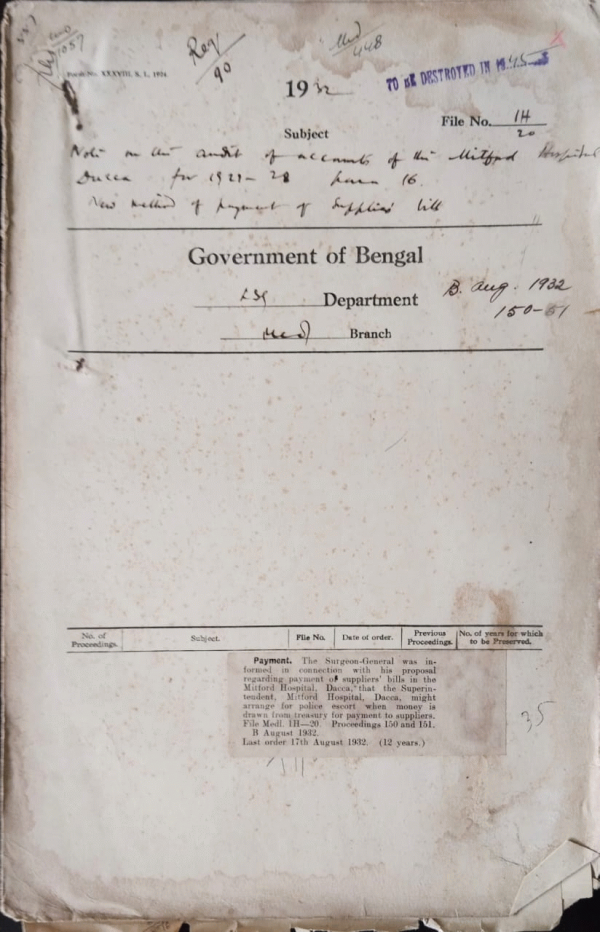 Reg/90
Med/448
Form No. XXXVIII. S. L. 1924.
1932
TO BE DESTROYED IN 1945
File No. 1H/20
Subject
Note on the audit of accounts of the Mitford Hospital
Dacca for 1927-28 para 16.
New method of payment of Suppliers' bill
Government of Bengal
LSG Department
B. Aug. 1932
150-51
Med Branch
No. of Proceedings.
Subject.
File No.
Date of order.
Previous Proceedings.
No. of years for which to be Preserved.
Payment. The Surgeon-General was in-
formed in connection with his proposal
regarding payment of suppliers' bills in the
Mitford Hospital, Dacca, that the Superin-
tendent, Mitford Hospital, Dacca, might
arrange for police escort when money is
drawn from treasury for payment to suppliers.
File Medl. 1H—20. Proceedings 150 and 151.
B August 1932.
Last order 17th August 1932. (12 years.)
35